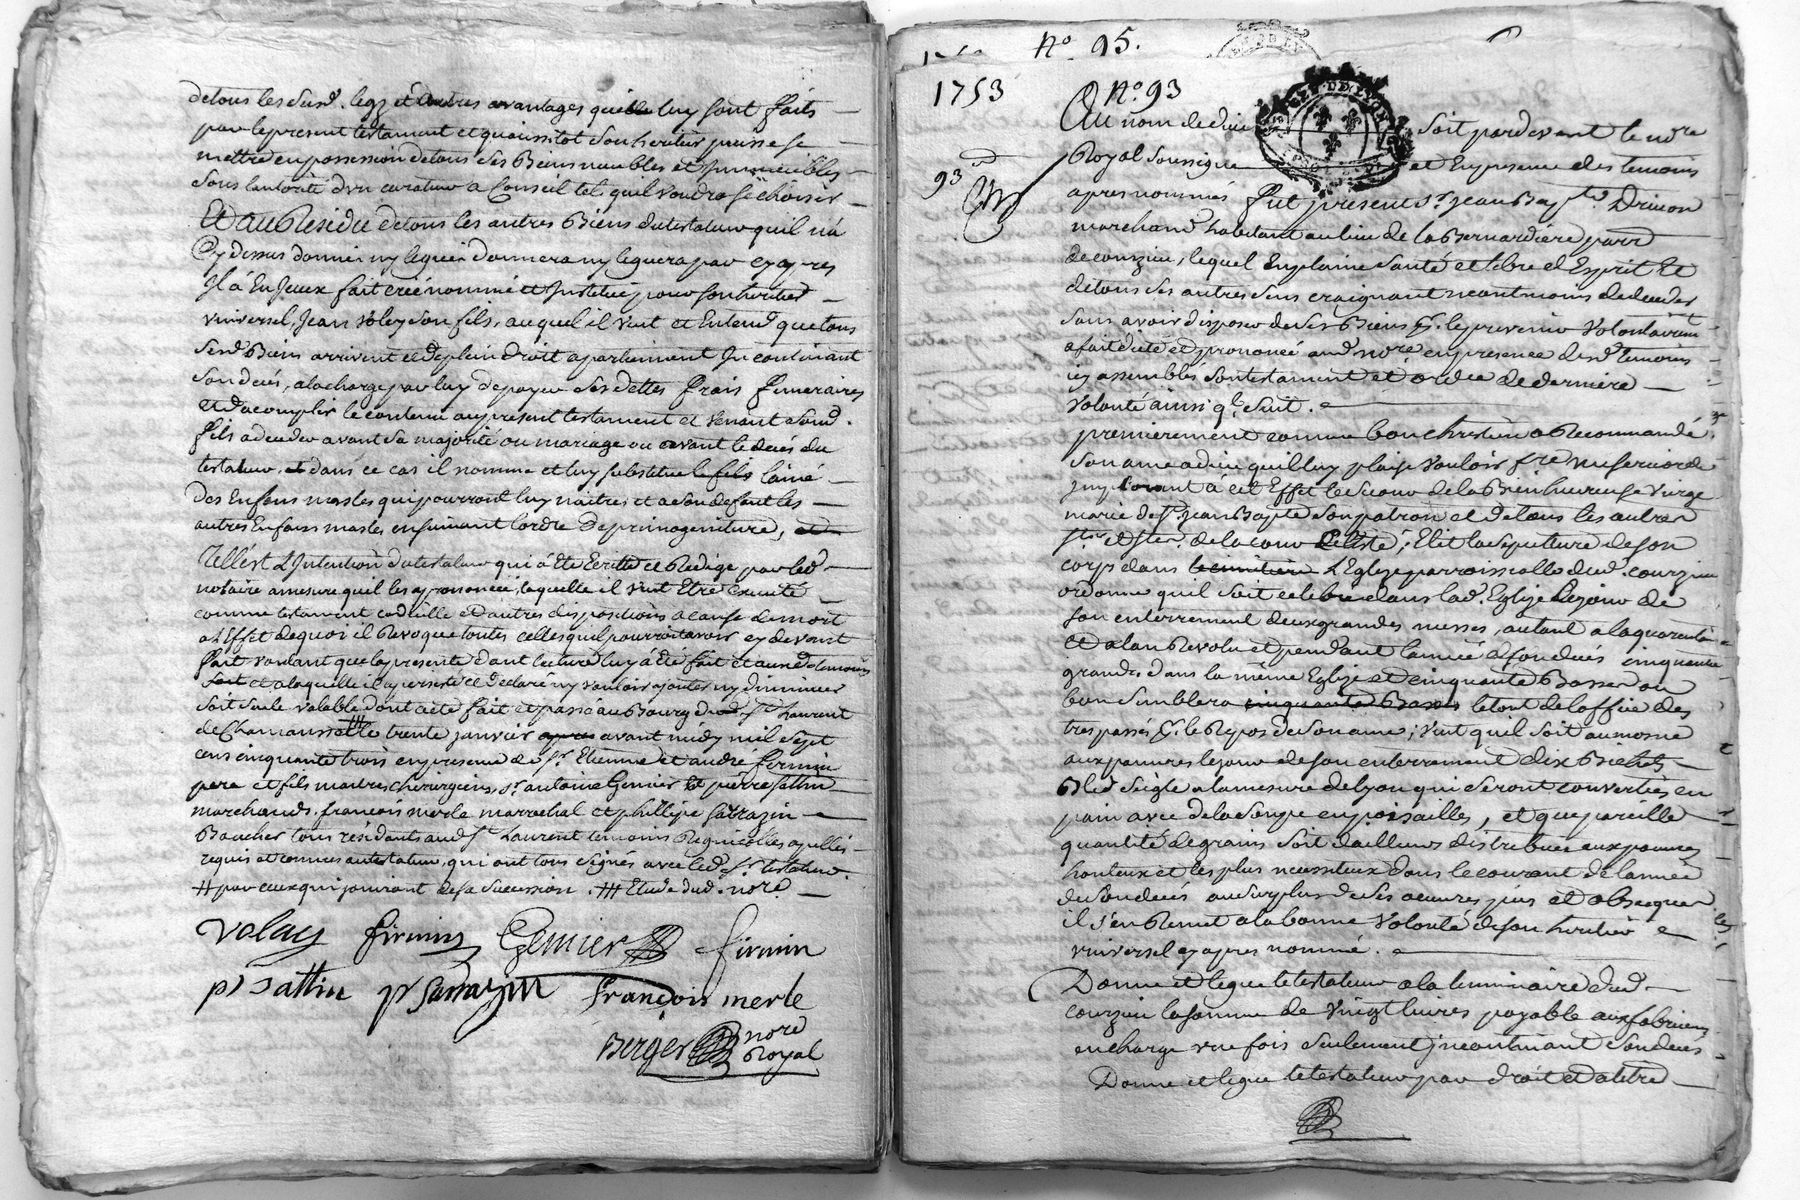 de tous les susd. legz et autres avantages qui luy sont faits
par le present testament et quaussitot son heritier puisse se
mettre en possession de tous ses Biens meubles et Immeubles
sous lautorité d'un curateur a Conseil tel quil voudra se choisir
Et au Residu de tous les autres Biens du testateur quil n'a
Cy dessus donné ny legué donnera ny leguera par cy apres
Il á fait creé nommé et Institué pour son heritier
vniversel, Jean Volay son fils, auquel il veut et Entend que tous
sesd. Biens arrivent et de plein droit apartiennent Incontinant
son decés, a la charge par luy de payer ses dettes frais funeraires
Et dacomplir le contenu au present testament et venant sond.
fils a deceder avant sa majorité ou mariage ou avant le decés du
testateur, dans ce cas il nomme et luy substitue le fils lainé
des Enfans masles qui pourront luy naitre, et a son defaut les
autres Enfans masles en suivant lordre de primogeniture,
Telle est L'Intention du testateur qui á été Ecritte et Redigé par led.
notaire a mesure quil les a prononcée, laquelle il veut Etre Executé
comme testament codicille et d'autres dispositions a cause de mort
a L'effet de quoy il Revoque toutes celles quil pourroit avoir cy devant
fait voulant que la presente dont lecture luy á été fait et ausd. temoins
soit et a laquelle il a persisté et declaré ny vouloir ajouter ny diminuer
soit seule valable dont acte fait et passé au Bourg dud. St Laurent
de Chamoussette ### trente janvier apres avant midy mil sept
cens cinquante trois en presence de Sr. Etienne et andré firmin
pere et fils maitres chirurgiens, Sr. antoine Gemier et pierre sattin
marchands, françois merle marechal et phillipe sarrazin
Boucher tous residants aud. St Laurent temoins Regnicolles apellés
requis et connus au testateur, qui ont tous signés avec led. Sr. testateur.
# par ceux qui jouiront de sa sucession. ### Etude dud. nore
Volay firmin Gemier firmin
pr Sattin pr Sarrazin françois merle
Berger nore
Royal
No. 95.
1753 No. 93
Au nom de dieu soit par devant le nore
Royal soussigné et En presence des temoins
93
apres nommés fut present Sr. Jean Bapte. Drivon
marchand habitant au lieu de la Bernardiére parr
de courzieu, lequel En plaine santé et libre d'Esprit Et
de tous ses autres sens craignant neantmoins de deceder
sans avoir disposer de ses Biens pr. le prevenir Volontairemt
a fait dicté et prononcé aud. nore en presence desd. temoins
icy assemblés son testament et ordre de derniére
Volonté ainsi ql. suit.
premiérement comme bon chretien a Recommandé
son ame a dieu quil luy plaise vouloir fre misericorde
Implorant á cet Effet le secour de la Bienheureuse vierge
marie de St. Jean Bapte son patron et de tous les autres
Sts. et Stes. de la cour Celeste; Elit la sepulture de son
corps dans le cimitiére L'Eglize parroissialle dud. courzieu
ordonne quil soit celebre dans lad. Eglize Le jour de
son enterrement deux grandes messes, autant a la quarentaine
et a lan Revolu et pendant lannée de son decés cinquante
grands. dans la même Eglize et cinquante Basses ou
bon semblera cinquante Basses le tout de loffice des
trespassés pr. le Repos de son ame; veut quil soit aumosné
aux pauvres le jour de son enterrement dix Bichets
Bled seigle a la mesure de lyon qui seront convertis en
pain avec de la soupe en poisailles, et que pareille
quantité de grains soit dailleurs distribuée aux pauvres
honteux et les plus necessiteux dans le courant de lannée
de son decés au surplus de ses oeuvres pies et obseques
il s'en Remet a la bonne volonté de son heritier
vniversel cy apres nommé.
Donne et legue le testateur a la luminaire dud.
courzieu la somme de vingt livres payable aux fabriciens
en charge vne fois seulement jncontinant son decés
Donne et legue le testateur par droit et a titre